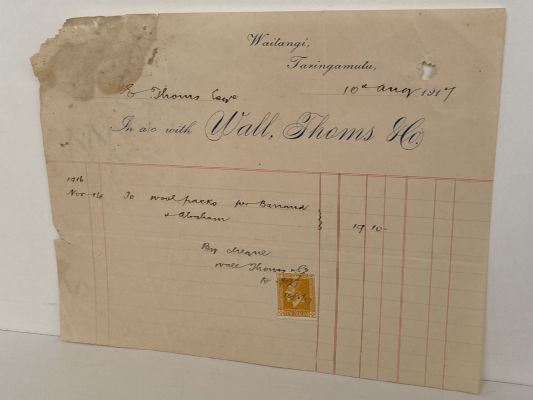 Waitangi,
Taringamutu,
E Thoms Esqr
10th Aug 1917
In a/c with Wall, Thoms & Co.
1916
Nov 16 To wool packs per Barraud
& Abraham
19 10 -
By cheque
Wall Thoms & Co